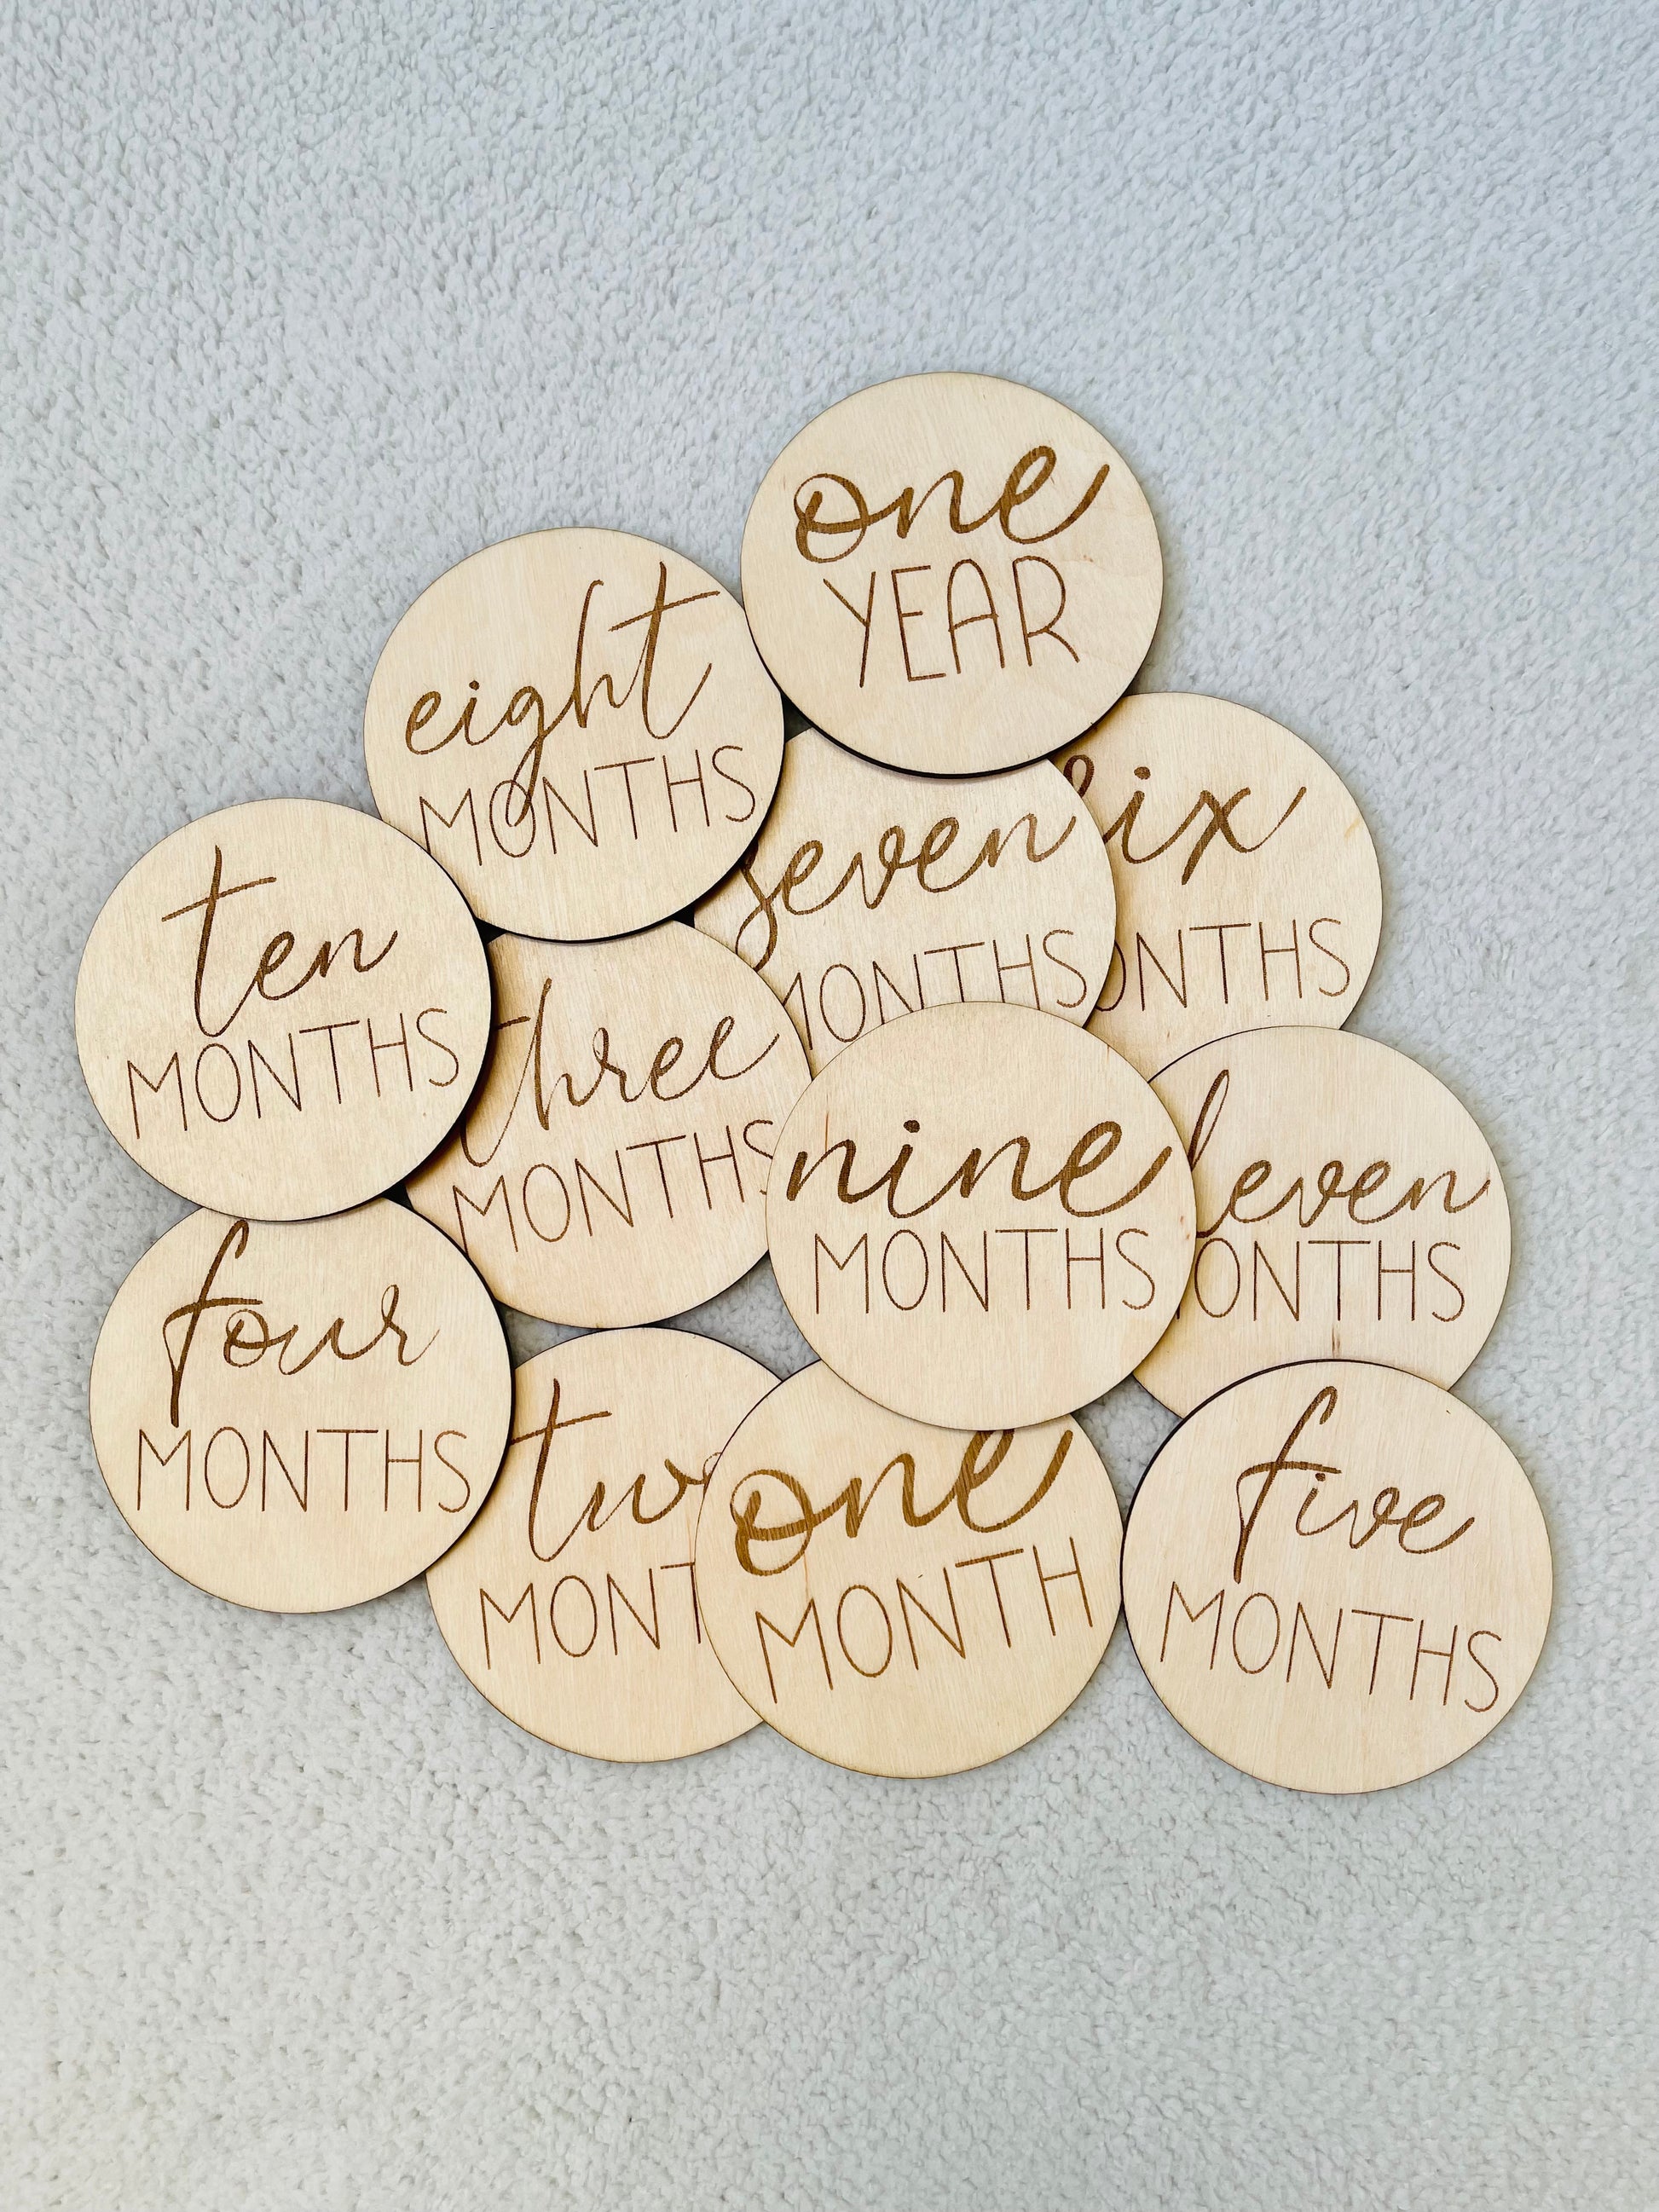 one
YEAR
eight
MONTHS
seven
MONTHS
ix
ONTHS
ten
MONTHS
three
MONTHS
nine
MONTHS
leven
ONTHS
four
MONTHS
two
MONT
one
MONTH
five
MONTHS